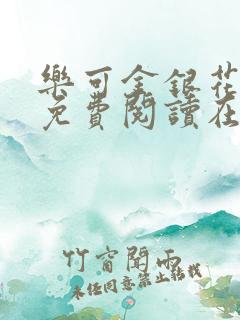 樂可金銀花
免費閱讀在
竹窗聞雨
未经同意禁止转载